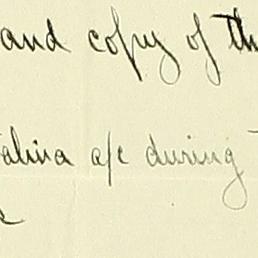 and copy of th
alina a/c during